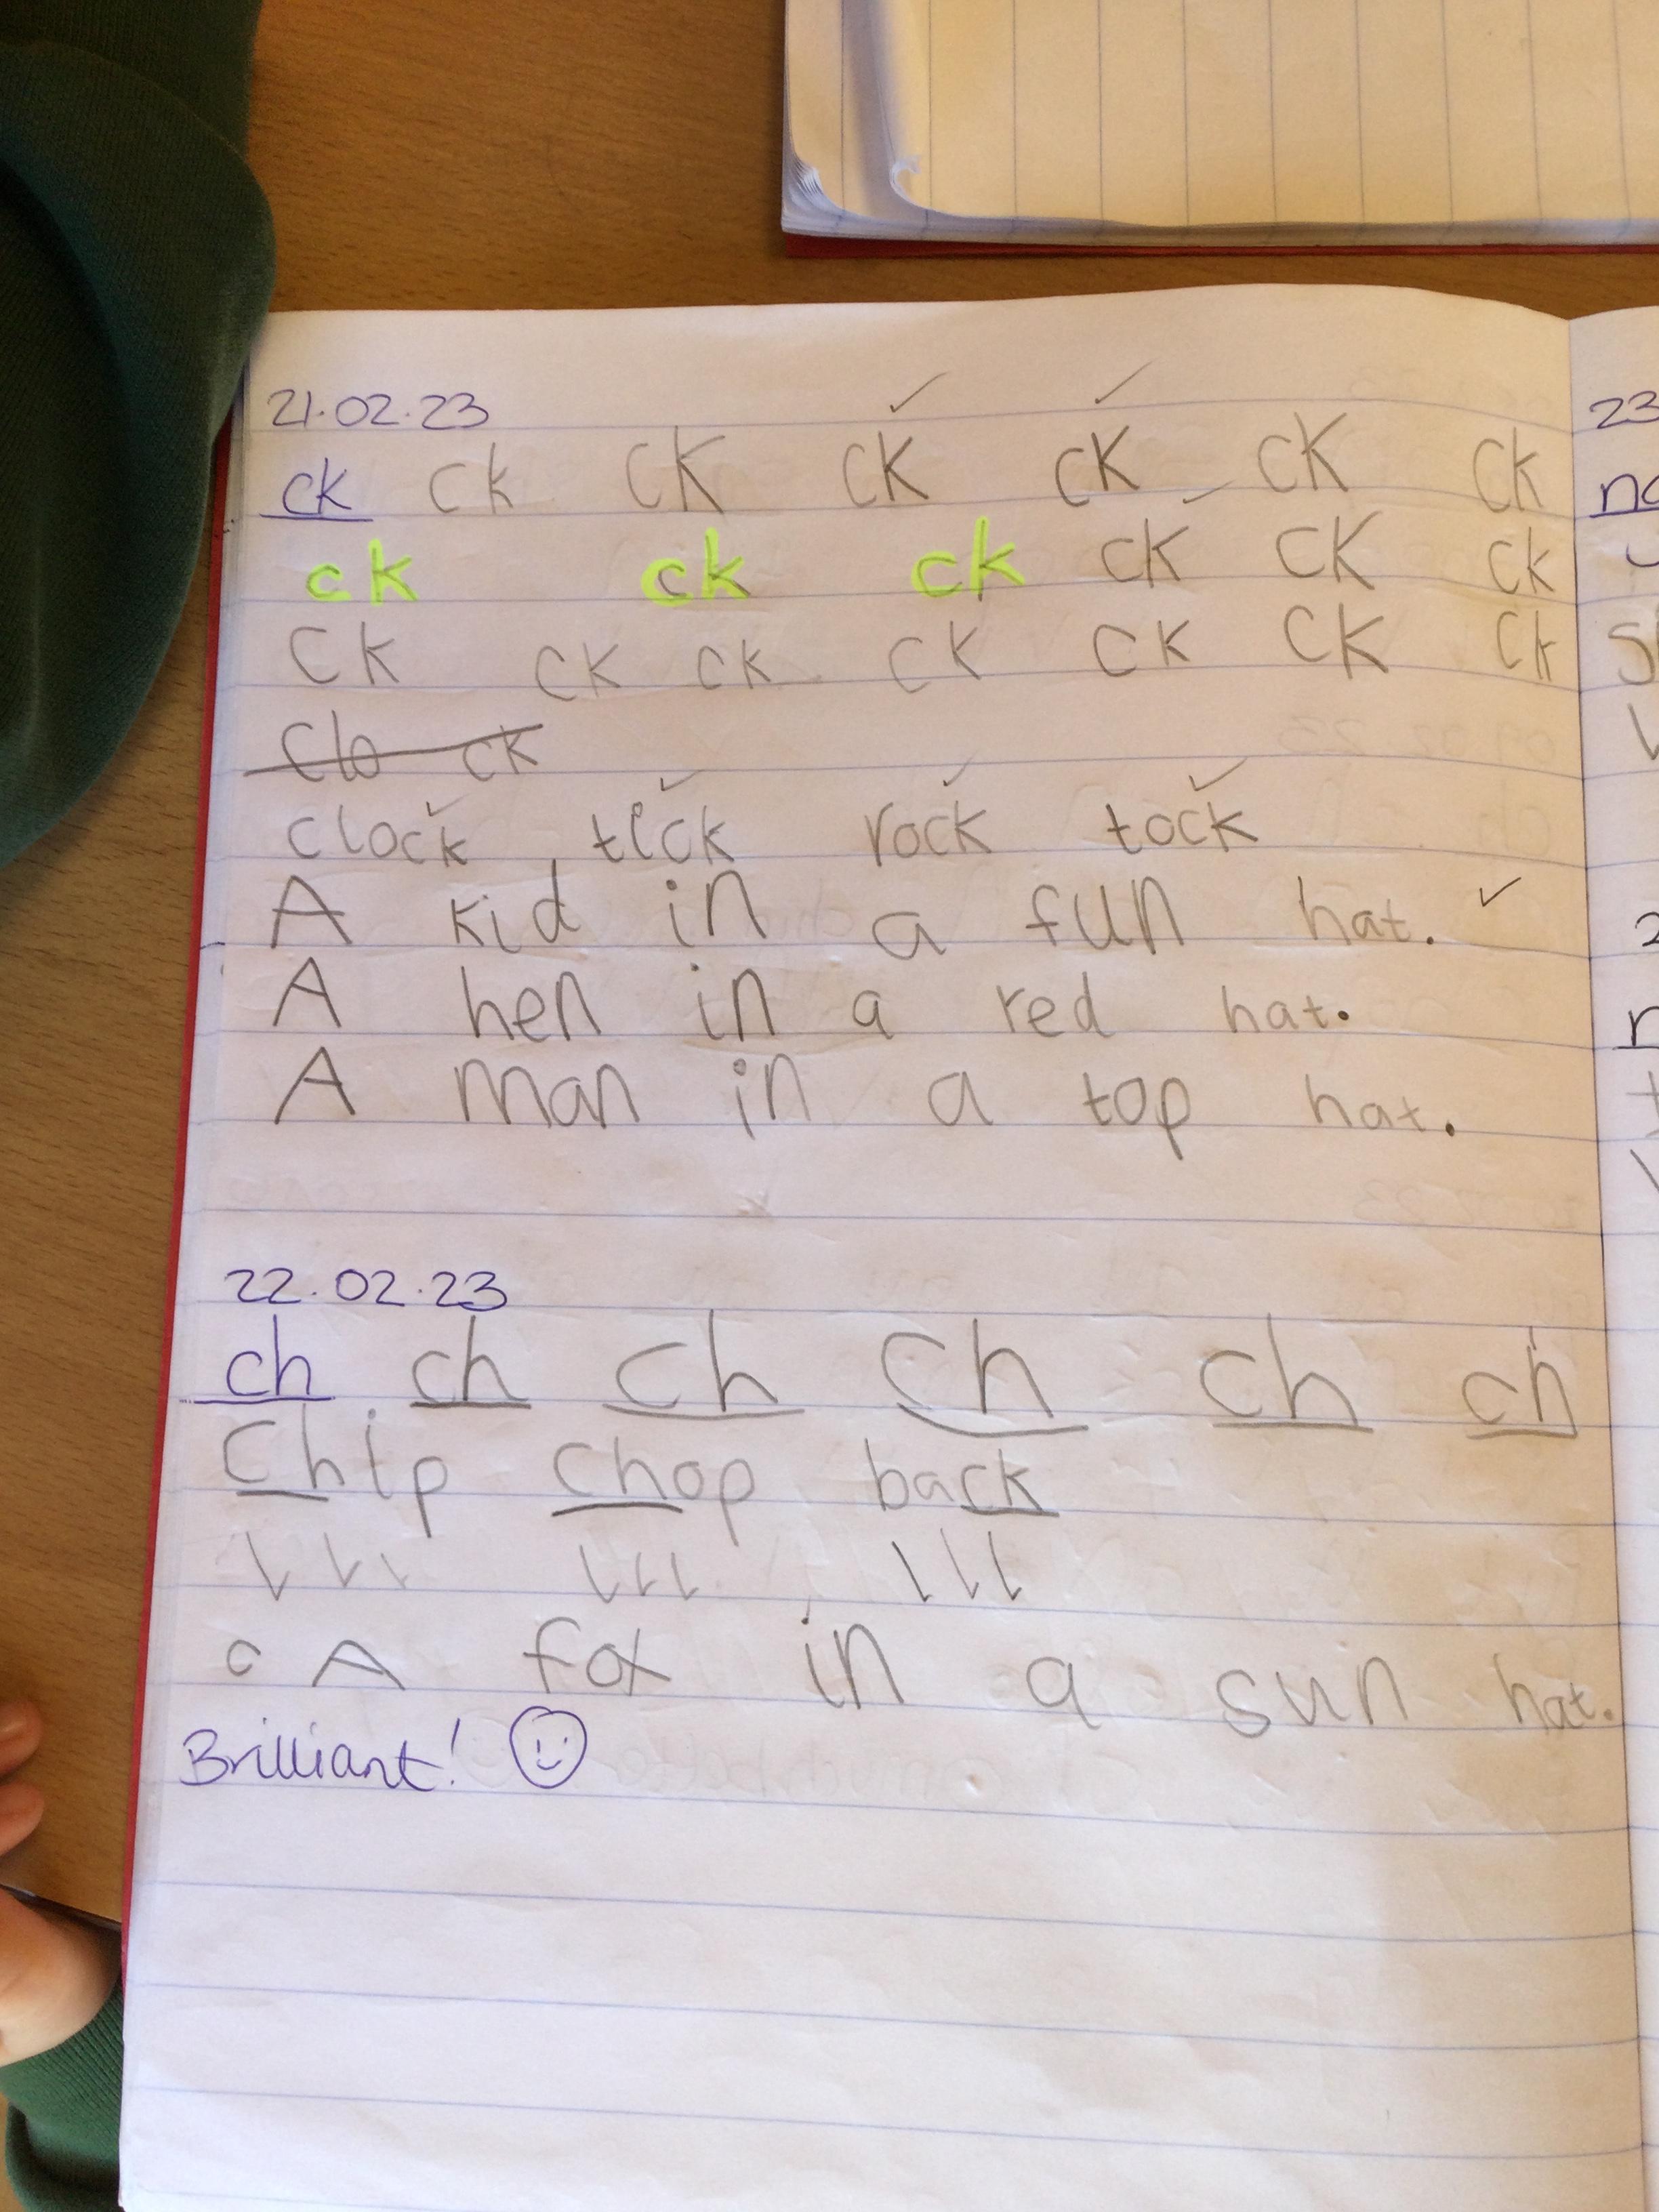 21.02.23
ck ck ck ck ck ck ck
ck ck ck ck ck ck
ck ck ck ck ck ck ck
clo ck
clock, tick rock tock
A kid in a fun hat.
A hen in a red hat.
A man in a top hat.
22.02.23
ch ch ch ch ch ch
Chip chop back
A fox in a sun hat.
Brilliant!
23